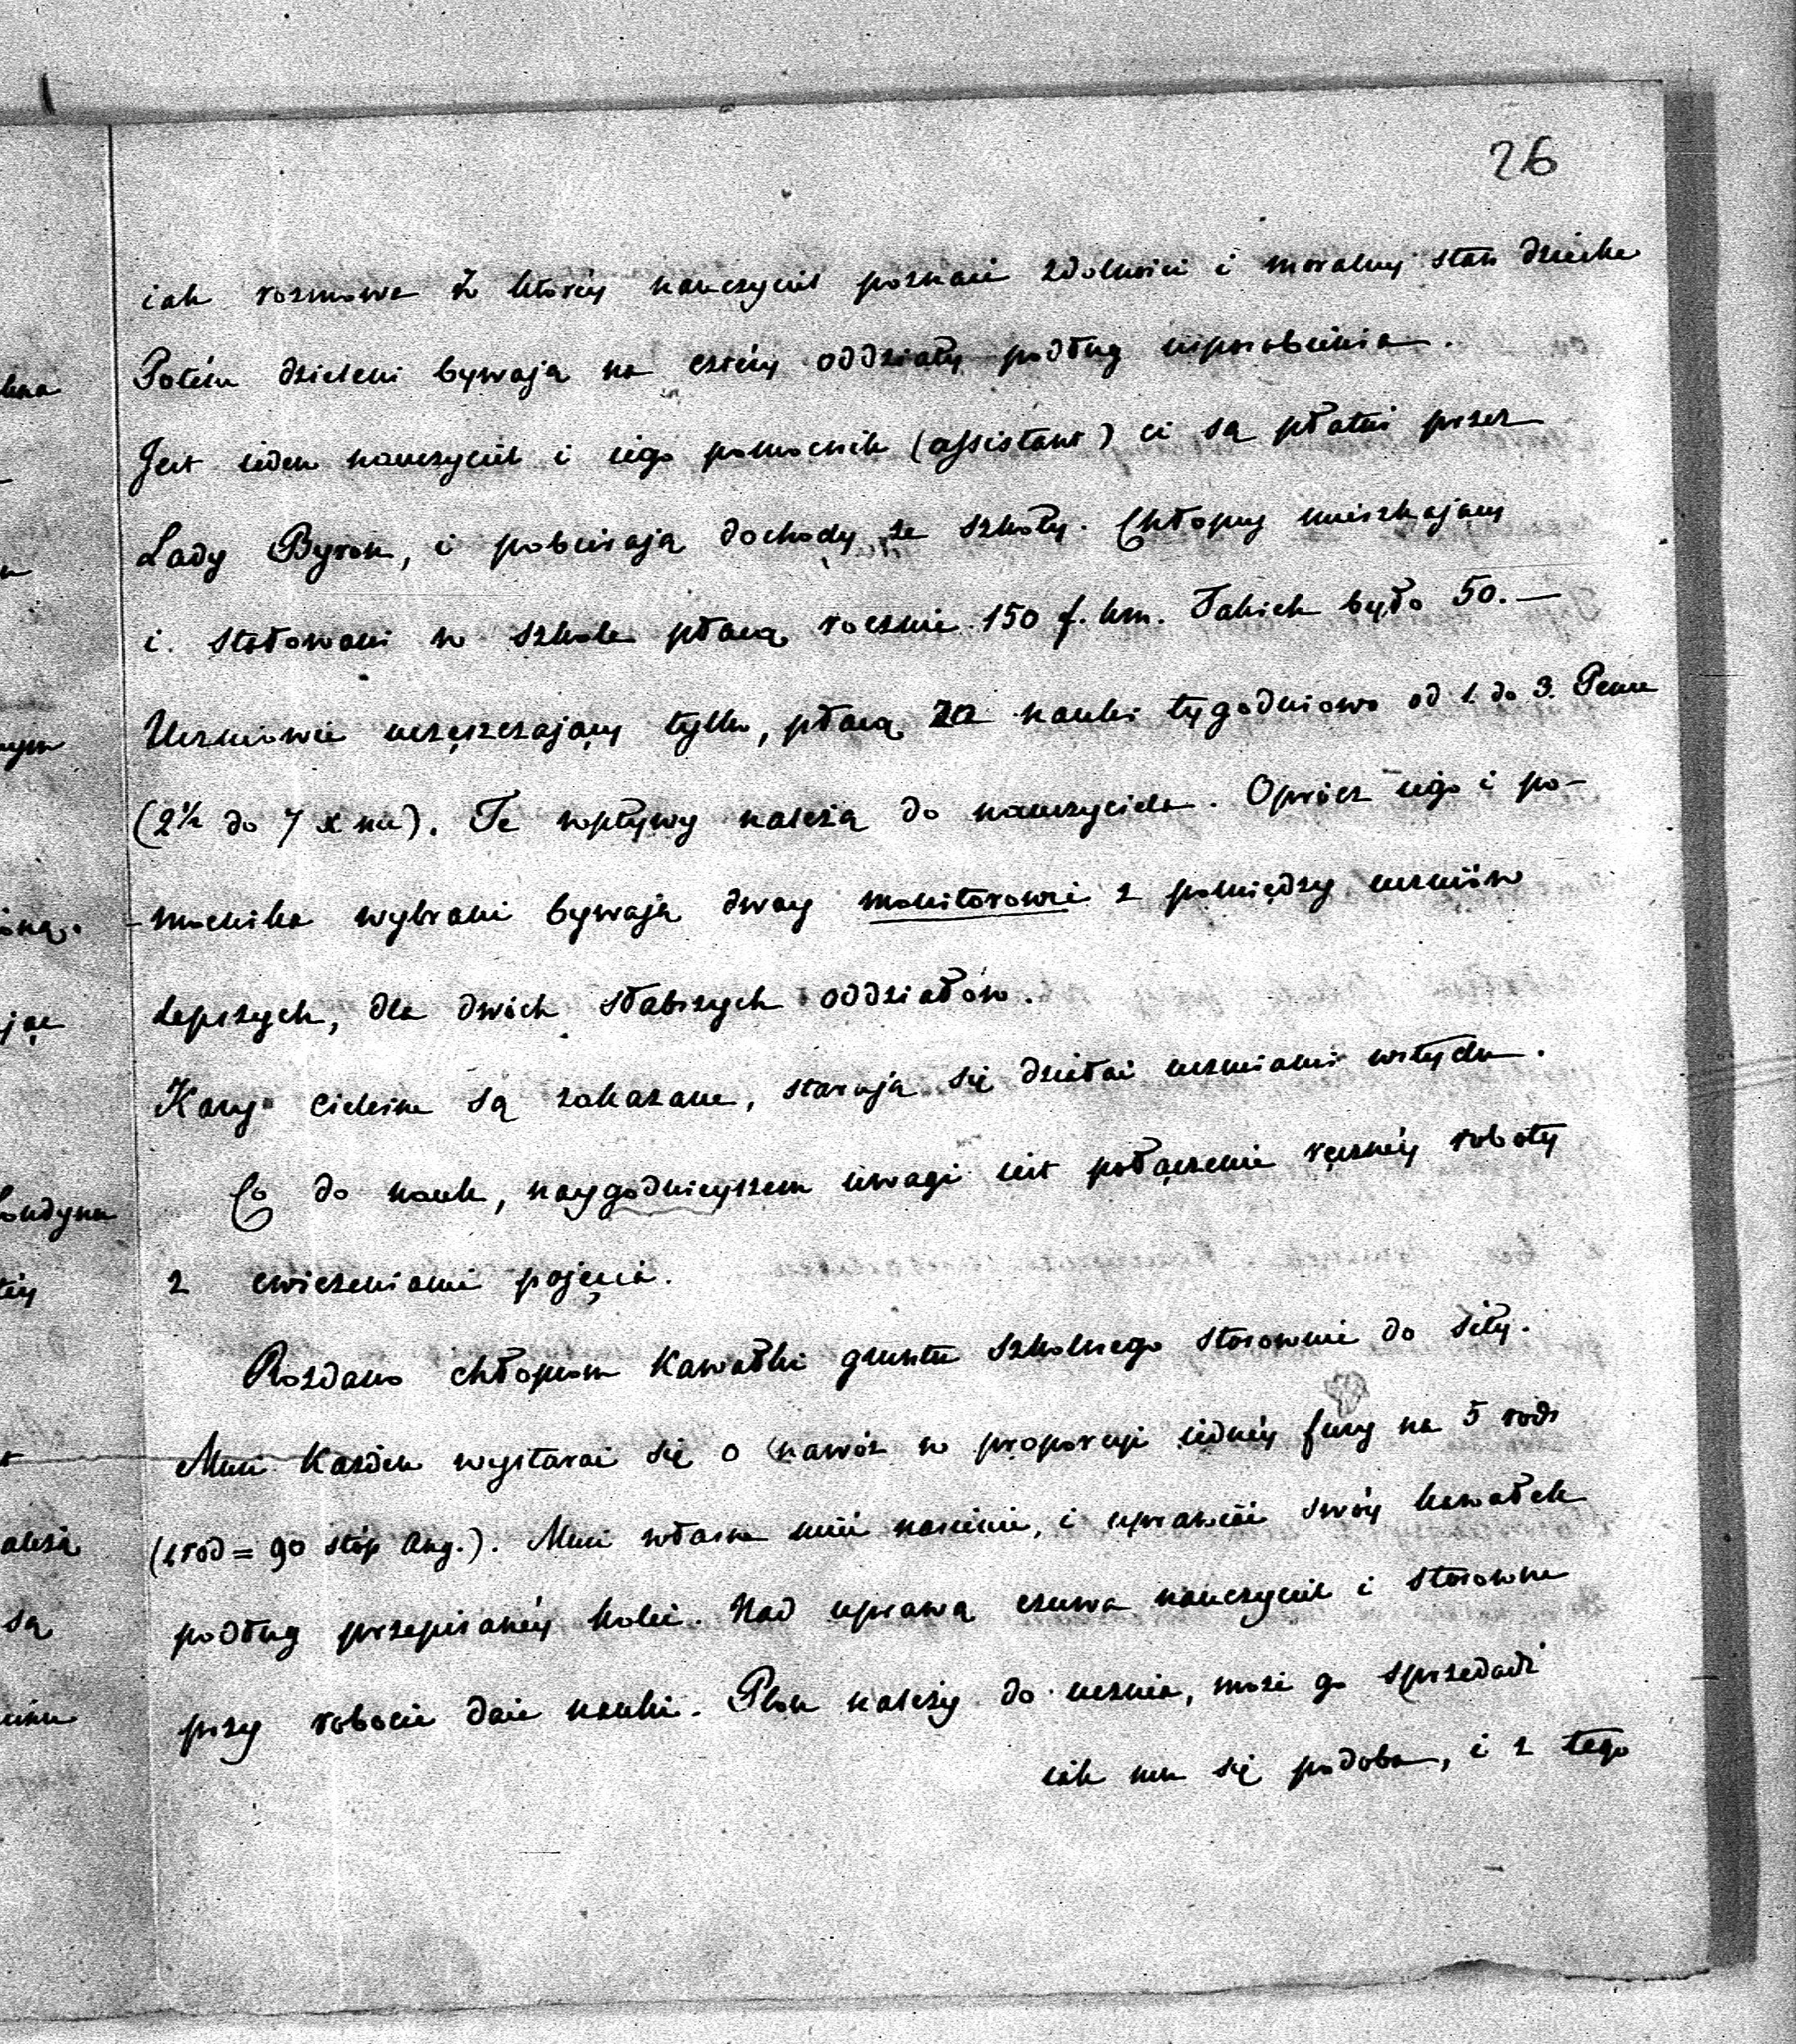 26
iak rozmowa z któréy nauczyciel poznaie zdolności i moralny stan dziecka
Potém dzieleni bywają na cztéry oddziały podług usposobienia.
Jest ieden nauczyciel i iego pomocnik (assistant) ci są płatni przez
Lady Byron, i pobieraią dochody ze szkoły. Chłopcy mieszkaiący
i stołowani w szkole płacą rocznie 150 f. km. Takich było 50.—
Uczniowie uczęszczaiący tylko, płacą za nauki tygodniowo od 1. do 3. Pence
(2½ do 7 x mk). Te wpływy należą do nauczyciela. Oprócz iego i po-
mocnika wybrani bywają dway monitorowie z pomiędzy uczniów
lepszych, dla dwóch słabszych oddziałów.
Kary cielesne są zakazane, staraią się działać uczuciami wstydu.
Co do nauk, naygodnieyszem uwagi iest połączenie ręcznéy roboty
z cwiczeniami pojęcia.
Rozdano chłopcom kawałki gruntu szkolnego stosownie do siły.
Musi każden wystarać się o nawóz w proporcyi iednéy fury na 5 rods
(1 rod = 90 stóp ang.). Musi własne mieć nasienie, i uprawiać swóy kawałek
podług przepisanéy kolei. Nad uprawą czuwa nauczyciel i stosowne
przy robocie daie nauki. Plon należy do ucznia, może go sprzedadź
iak mu się podoba, i z tego
lna
nym
jąc
Londynu
téy
ależą
są